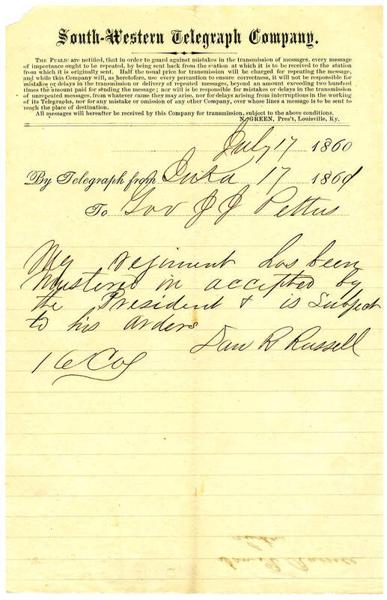 South-Western Telegraph Company.
THE PUBLIC are notified, that in order to guard against mistakes in the transmission of messages, every message
of importance ought to be repeated, by being sent back from the station at which it is to be received to the station
from which it is originally sent. Half the usual price for transmission will be charged for repeating the message,
and while this Company will, as heretofore, use every precaution to ensure correctness, it will not be responsible for
mistakes or delays in the transmission or delivery of repeated messages, beyond an amount exceeding two hundred
times the amount paid for sending the message; nor will it be responsible for mistakes or delays in the transmission
of unrepeated messages, from whatever cause they may arise, nor for delays arising from interruptions in the working
of its Telegraphs, nor for any mistake or omission of any other Company, over whose lines a message is to be sent to
reach the place of destination.
All messages will hereafter be received by this Company for transmission, subject to the above conditions.
N. GREEN, Pres't, Louisville, Ky.
July 17 1860
By Telegraph from Iuka 17 1861
To Gov J J Pettus
My regiment has been
Mustered in accepted by
the President & is Subject
to his orders
Dan R Russell
16 Col